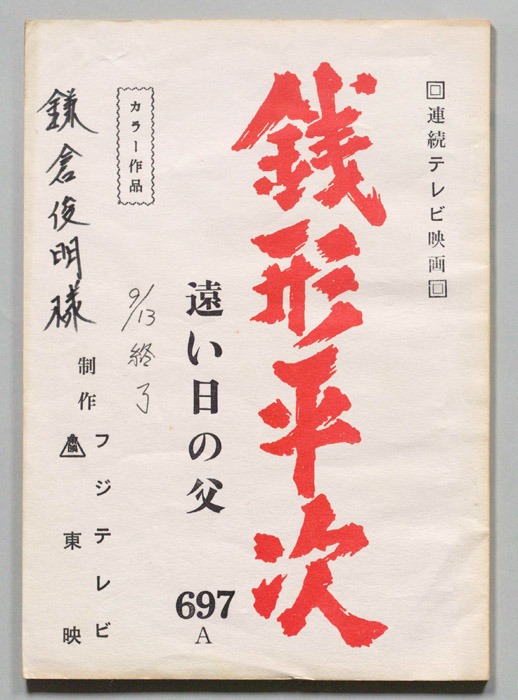 回連続テレビ映画回
銭形平次
遠い日の父
697
A
カラー作品
9/13 終了
鎌倉俊明様
制作
フジテレビ
東映